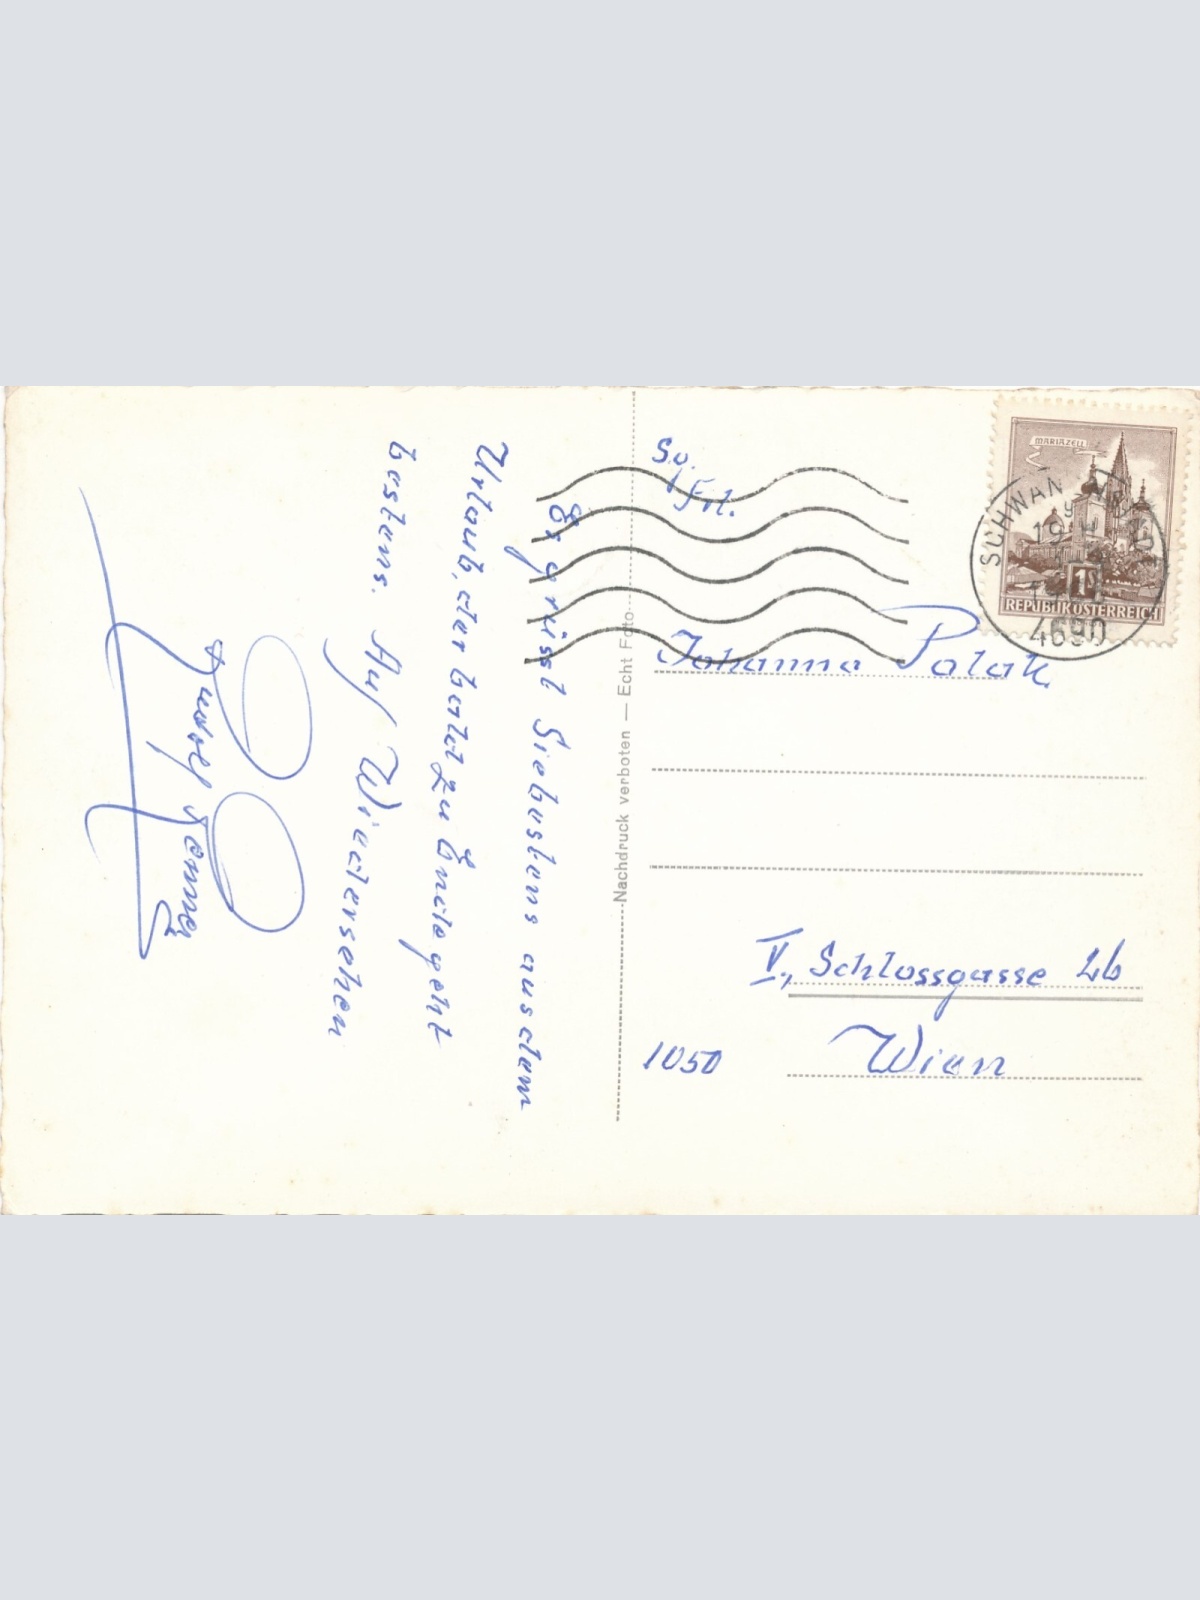 Es grüsst Sie bestens aus dem
Urlaub, der bald zu Ende geht
bestens. Auf Wiedersehen
Nachdruck verboten — Echt Foto
MARIAZELL
1S
REPUBLIK ÖSTERREICH
4690
Frl.
Johanna Polak
V., Schlossgasse
1050 Wien